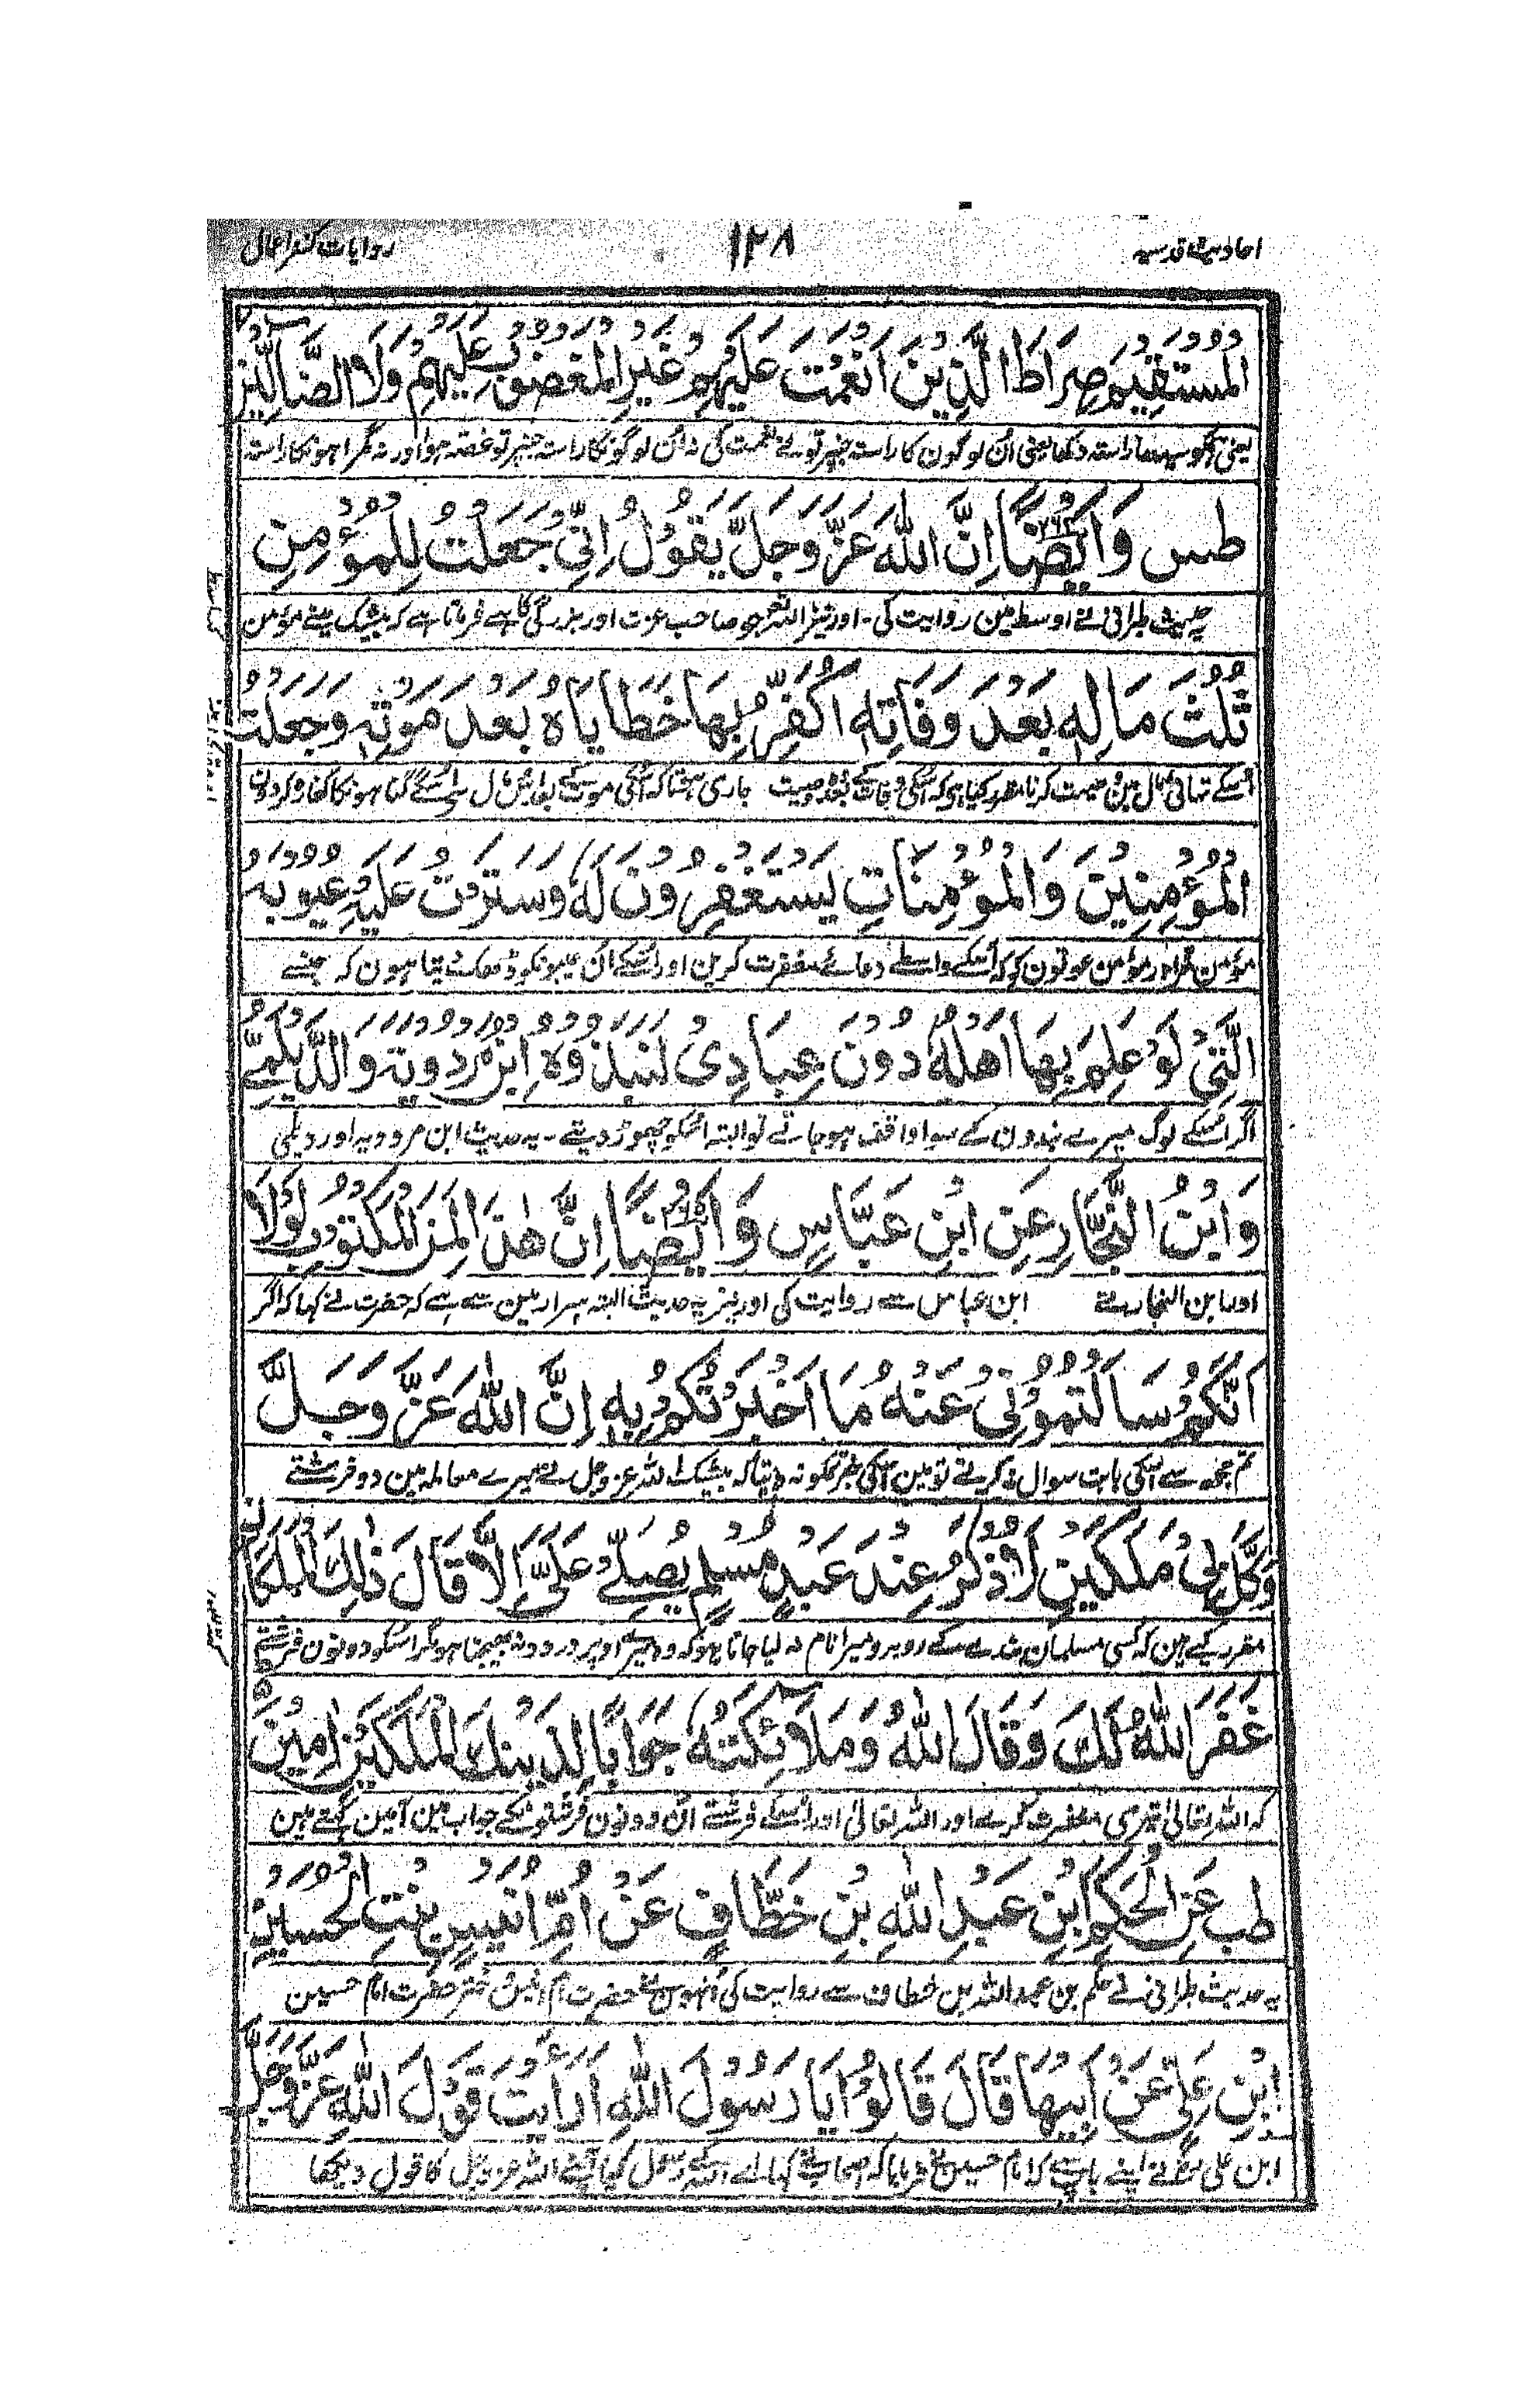 احادیث قدسیہ ۱۲۸ روایات کنز اعمال
الْمُسْتَقِيْمَ صِرَاطَ الَّذِيْنَ اَنْعَمْتَ عَلَيْهِمْ غَيْرِ الْمَغْضُوْبِ عَلَيْهِمْ وَلَا الضَّالِّيْنَ
یعنی ہمکو سیدھا راستہ دکھا یعنی اُن لوگون کا راستہ جنپر تونے نعمت کی نہ اُن لوگونکا راستہ جنپر تو غصہ ہوا اور نہ گمراہونکا راستہ
طس وَاَيْضًا اِنَّ اللّٰهَ عَزَّ وَجَلَّ يَقُوْلُ اِنِّيْ جَعَلْتُ لِلْمُؤْمِنِ
یہ حدیث طبرانی نے اوسط مین روایت کی۔ اور نیز اللہ جو صاحب عزت اور بزرگی کا ہے فرماتا ہے کہ بیشک مینے مؤمن
ثُلُثَ مَالِهٖ بَعْدَ وَفَاتِهٖ اُكَفِّرُ بِهَا خَطَايَاهُ بَعْدَ مَوْتِهٖ وَجَعَلْتُ
اُسکے تہائی مال مین وصیت کرنا مقرر کیا ہی کہ اُسکی وفات کے بعد وصیت جاری ہو تاکہ اُسکی موت کے بعد
الْمُؤْمِنِيْنَ وَالْمُؤْمِنَاتِ يَسْتَغْفِرُوْنَ لَهٗ وَسَتَرْتُ عَلَيْهِ عُيُوْبَهُ
مؤمن مرد اور مؤمن عورتون کو کہ اُسکے واسطے دعائے مغفرت کرین اور اُسکے اُن عیبونکو ڈھک دیتا ہون کہ جنسے
الَّتِيْ لَوْ عَلِمَ بِهَا اَهْلُهٗ دُوْنَ عِبَادِيْ لَنَبَذُوْهُ اِبْنُ مَرْدُوْيَه وَالدَّيْلَمِيُّ
اگر اُسکے لوگ میرے بندون کے سوا واقف ہو جاتے تو البتہ اُسکو چھوڑ دیتے۔ یہ حدیث ابن مردویہ اور دیلمی
وَابْنُ النَّجَّارِ عَنِ ابْنِ عَبَّاسٍ وَاَيْضًا اِنَّ هٰذَا لَمِنَ الْمَكْتُوْمِ لَوْلَا
اور ابن النجار نے ابن عباس سے روایت کی اور نیز یہ حدیث البتہ اسرار مین سے ہے کہ حضرت نے کہا کہ اگر
اَنَّكُمْ سَاَلْتُمُوْنِيْ عَنْهُ مَا اَخْبَرْتُكُمْ بِهٖ اِنَّ اللّٰهَ عَزَّ وَجَلَّ
تم مجھ سے اسکی بابت سوال نہ کرتے تو مین اسکی خبر تمکو نہ دیتا کہ بیشک اللہ عزوجل نے میرے معاملہ مین دو فرشتے
وَكَّلَ بِيْ مَلَكَيْنِ لَا اُذْكَرُ عِنْدَ عَبْدٍ مُسْلِمٍ يُصَلِّيْ عَلَيَّ اِلَّا قَالَ ذٰلِكَ الْمَلَكَانِ
مقرر کیے ہین کہ کسی مسلمان بندے کے روبرو میرا نام نہ لیا جاتا ہو کہ وہ میرے اوپر درود نہ بھیجتا ہو مگر اسکو دونون فرشتے
غَفَرَ اللّٰهُ لَكَ وَقَالَ اللّٰهُ وَمَلَائِكَتُهٗ جَوَابًا لِذَيْنِكَ الْمَلَكَيْنِ اٰمِيْنَ
کہ اللہ تعالیٰ تیری مغفرت کرے اور اللہ تعالیٰ اور اُسکے فرشتے اُن دونون فرشتونکے جواب مین آمین کہتے ہین
طب عَنِ الْحَكَمِ ابْنِ عَبْدِ اللّٰهِ بْنِ خَطَّافٍ عَنْ اُمِّ اَنِيْسٍ بِنْتِ الْحُسَيْنِ
یہ حدیث طبرانی نے حکم بن عبداللہ بن خطاف سے روایت کی اُنہون نے حضرت ام انیس دختر حضرت امام حسین
ابْنِ عَلِيٍّ عَنْ اَبِيْهَا قَالَ قَالُوْا يَا رَسُوْلَ اللّٰهِ اَرَاَيْتَ قَوْلَ اللّٰهِ عَزَّ وَجَلَّ
ابن علی سے اپنے باپ سے کہ امام حسین نے فرمایا کہ صحابہ نے کہا اے اللہ کے رسول کیا آپنے اللہ عزوجل کا قول دیکھا